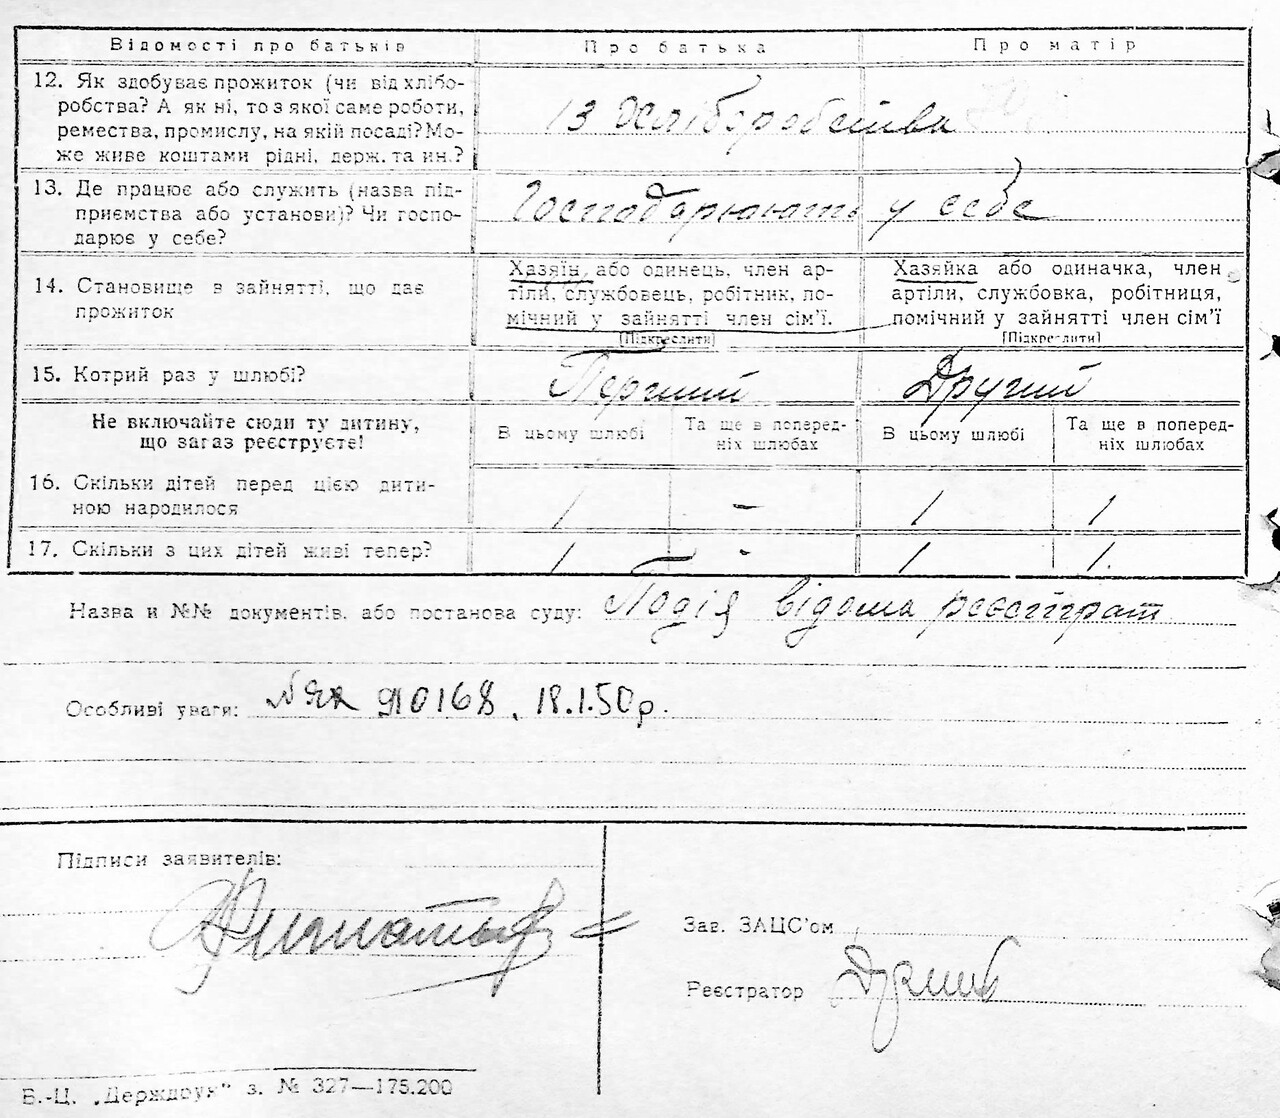 Відомості про батьків Про батька Про матір
12. Як здобуває прожиток (чи від хлібо-
робства? А як ні, то з якої саме роботи,
ремества, промислу, на якій посаді? Мо-
же живе коштами рідні, держ. та ин.?
Із Хліборобства
13. Де працює або служить (назва під-
приємства або установи)? Чи госпо-
дарює у себе?
Господарюють у себе
14. Становище в зайнятті, що дає
прожиток
Хазяїн, або одинець, член ар-
тіли, службовець, робітник, по-
мічний у зайнятті член сім'ї.
(Підкреслити)
Хазяйка або одиначка, член
артіли, службовка, робітниця,
помічний у зайнятті член сім'ї
(Підкреслити)
15. Котрий раз у шлюбі? Перший Другий
Не включайте сюди ту дитину,
що зараз реєструєте!
В цьому шлюбі
Та ще в поперед-
ніх шлюбах
В цьому шлюбі
Та ще в поперед-
ніх шлюбах
16. Скільки дітей перед цією дити-
ною народилося
1 - 1 1
17. Скільки з цих дітей живі тепер? 1 - 1 1.
Назва и №№ документів, або постанова суду: Подія відома реєстрат
Особливі уваги: 910168. 18.1.50р.
Підписи заявителів:
Зав. ЗАЦС'ом
Реєстратор
Б.-Ц. „Держдрук" з. № 327—175.200